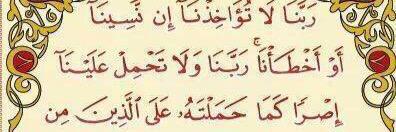 رَبَّنَا لَا تُؤَاخِذْنَآ إِن نَّسِينَآ
أَوْ أَخْطَأْنَا ۚ رَبَّنَا وَلَا تَحْمِلْ عَلَيْنَآ
إِصْرًا كَمَا حَمَلْتَهُۥ عَلَى ٱلَّذِينَ مِن